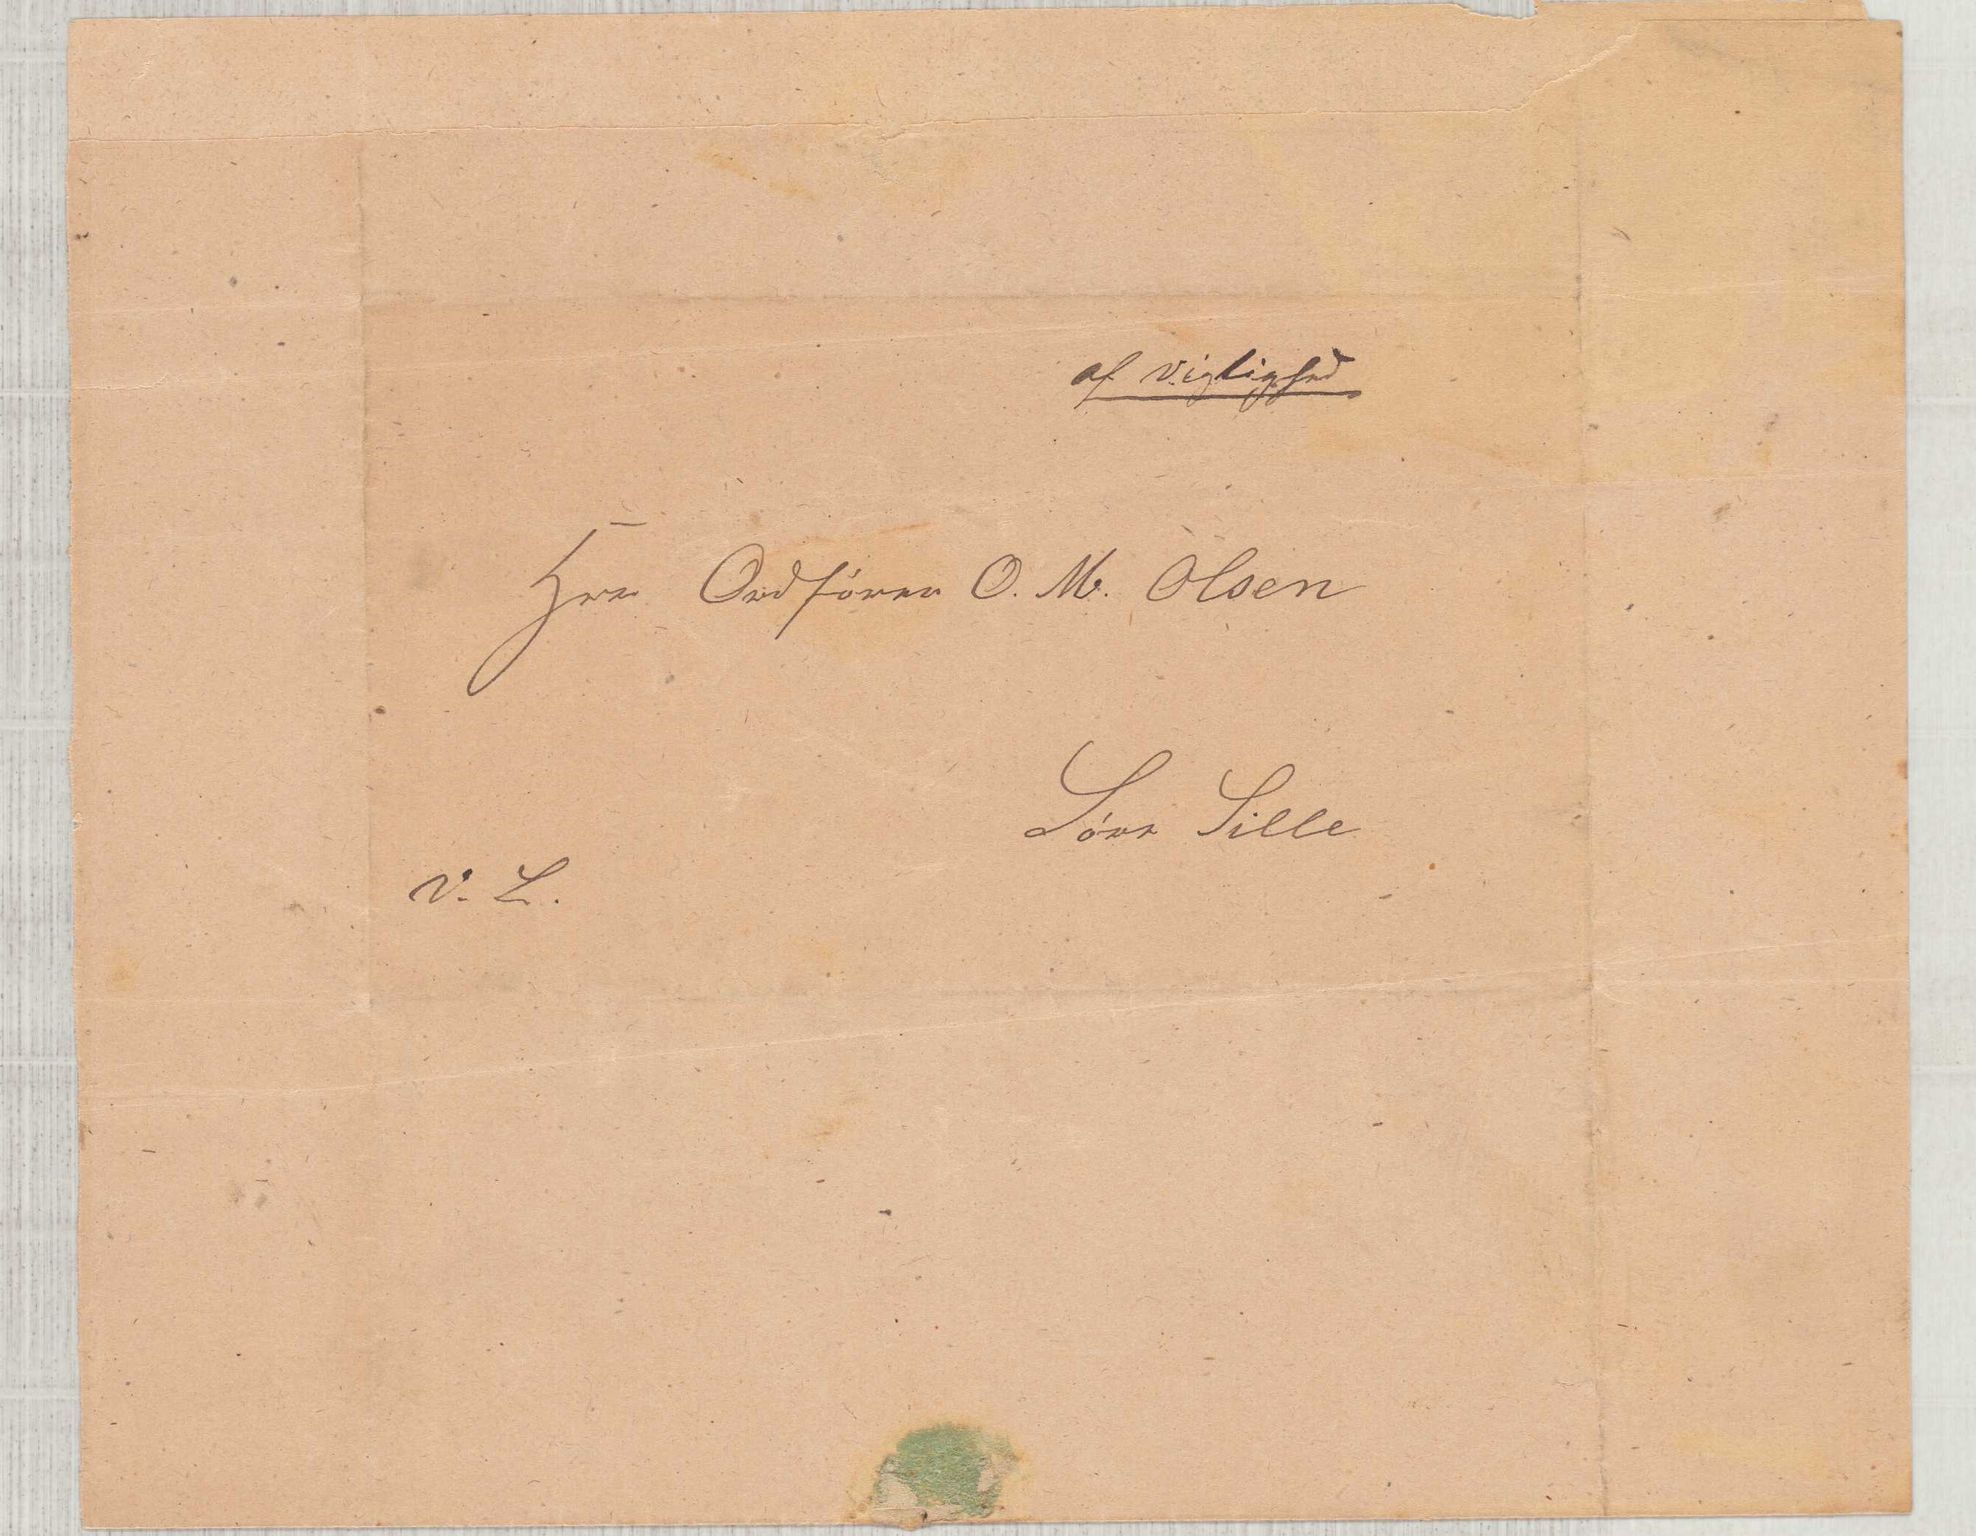 af Vigtighed
Hrr Ordförer O. M. Olsen
Sörr Lille
V. L.